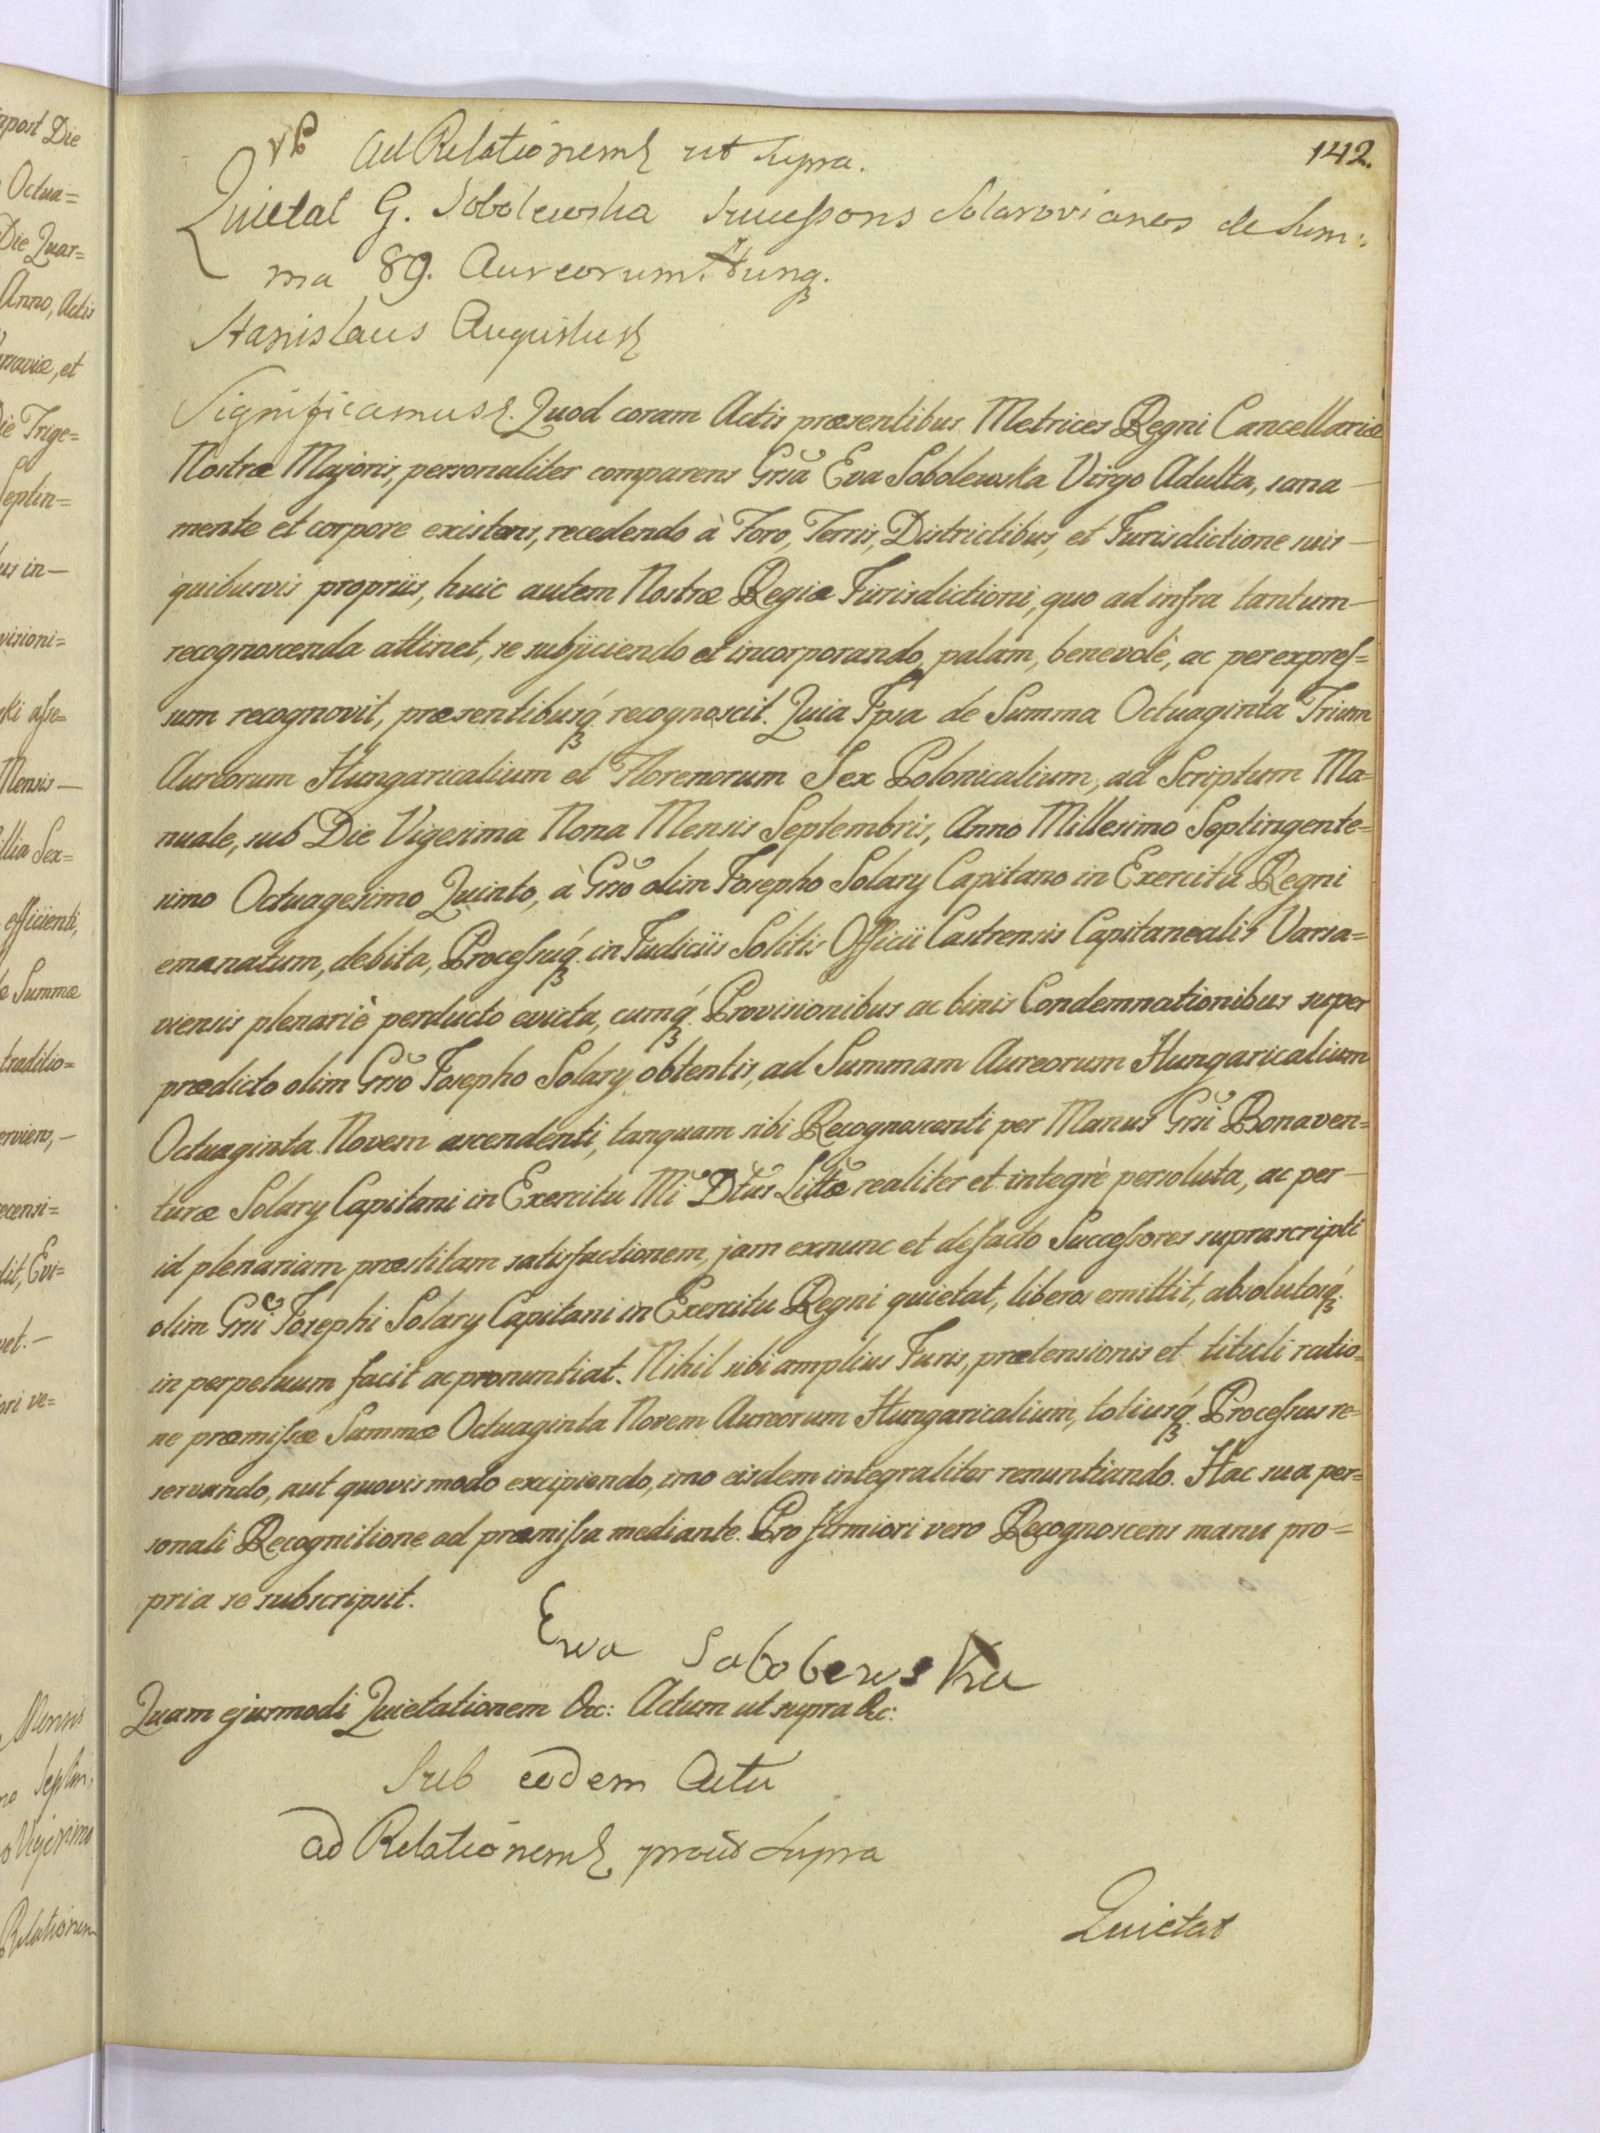 142.
Ad Relationem ut supra.
Quietat G. Sobolewska Successores Solarovianos de Sum:
ma 89. Aureorum Hung.
Stanislaus Augustus
Significamus. Quod coram Actis præsentibus Metrices Regni Cancellariæ
Nostræ Majoris, personaliter comparens Grsã Eva Sobolewska Virgo Adulta, sana
mente et corpore existens, recedendo à Foro, Terris, Districtibus, et Jurisdictione suis
quibusvis propriis, huic autem Nostræ Regiæ Jurisdictioni, quo ad infra tantum
recognoscenda attinet, se subjiciendo et incorporando, palam, benevolè, ac per expres=
sum recognovit, præsentibusq́ recognoscit. Quia Ipsa de Summa Octuaginta Trium
Aureorum Hungaricalium et Florenorum Sex Polonicalium, ad Scriptum Ma=
nuale, sub Die Vigesima Nona Mensis Septembris, Anno Millesimo Septingente=
simo Octuagesimo Quinto, à Grso olim Josepho Solary Capitano in Exercitu Regni
emanatum, debita, Processuq́ in Judiciis Solitis Officii Castrensis Capitanealis Varsa=
viensis plenariè perducto evicta, cumq́ Provisionibus ac binis Condemnationibus super
prædicto olim Grso Josepho Solary obtentis, ad Summam Aureorum Hungaricalium
Octuaginta Novem ascendenti, tanquam sibi Recognoscenti per Manus Grsi Bonaven=
turæ Solary Capitani in Exercitu Mi Dtus Littæ realiter et integrè persoluta, ac per
id plenariam præstitam satisfactionem, jam exnunc et defacto Successores suprascripti
olim Grsi Josephi Solary Capitani in Exercitu Regni quietat, liberos emittit, absolutosq́
in perpetuum facit ac pronuntiat. Nihil sibi amplius Juris, prætensionis et tituli ratio=
ne præmissæ Summæ Octuaginta Novem Aureorum Hungaricalium, totiusq́ Processus re=
servando, aut quovis modo excipiendo, imo eisdem integraliter renuntiando. Hac sua per=
sonali Recognitione ad præmissa mediante. Pro firmiori vero Recognoscens manu pro=
pria se subscripsit.
Ewa Sobolewska
Quam ejusmodi Quietationem &c: Actum ut supra &c:
Sub eodem Actu
ad Relationem prout supra
Quietat